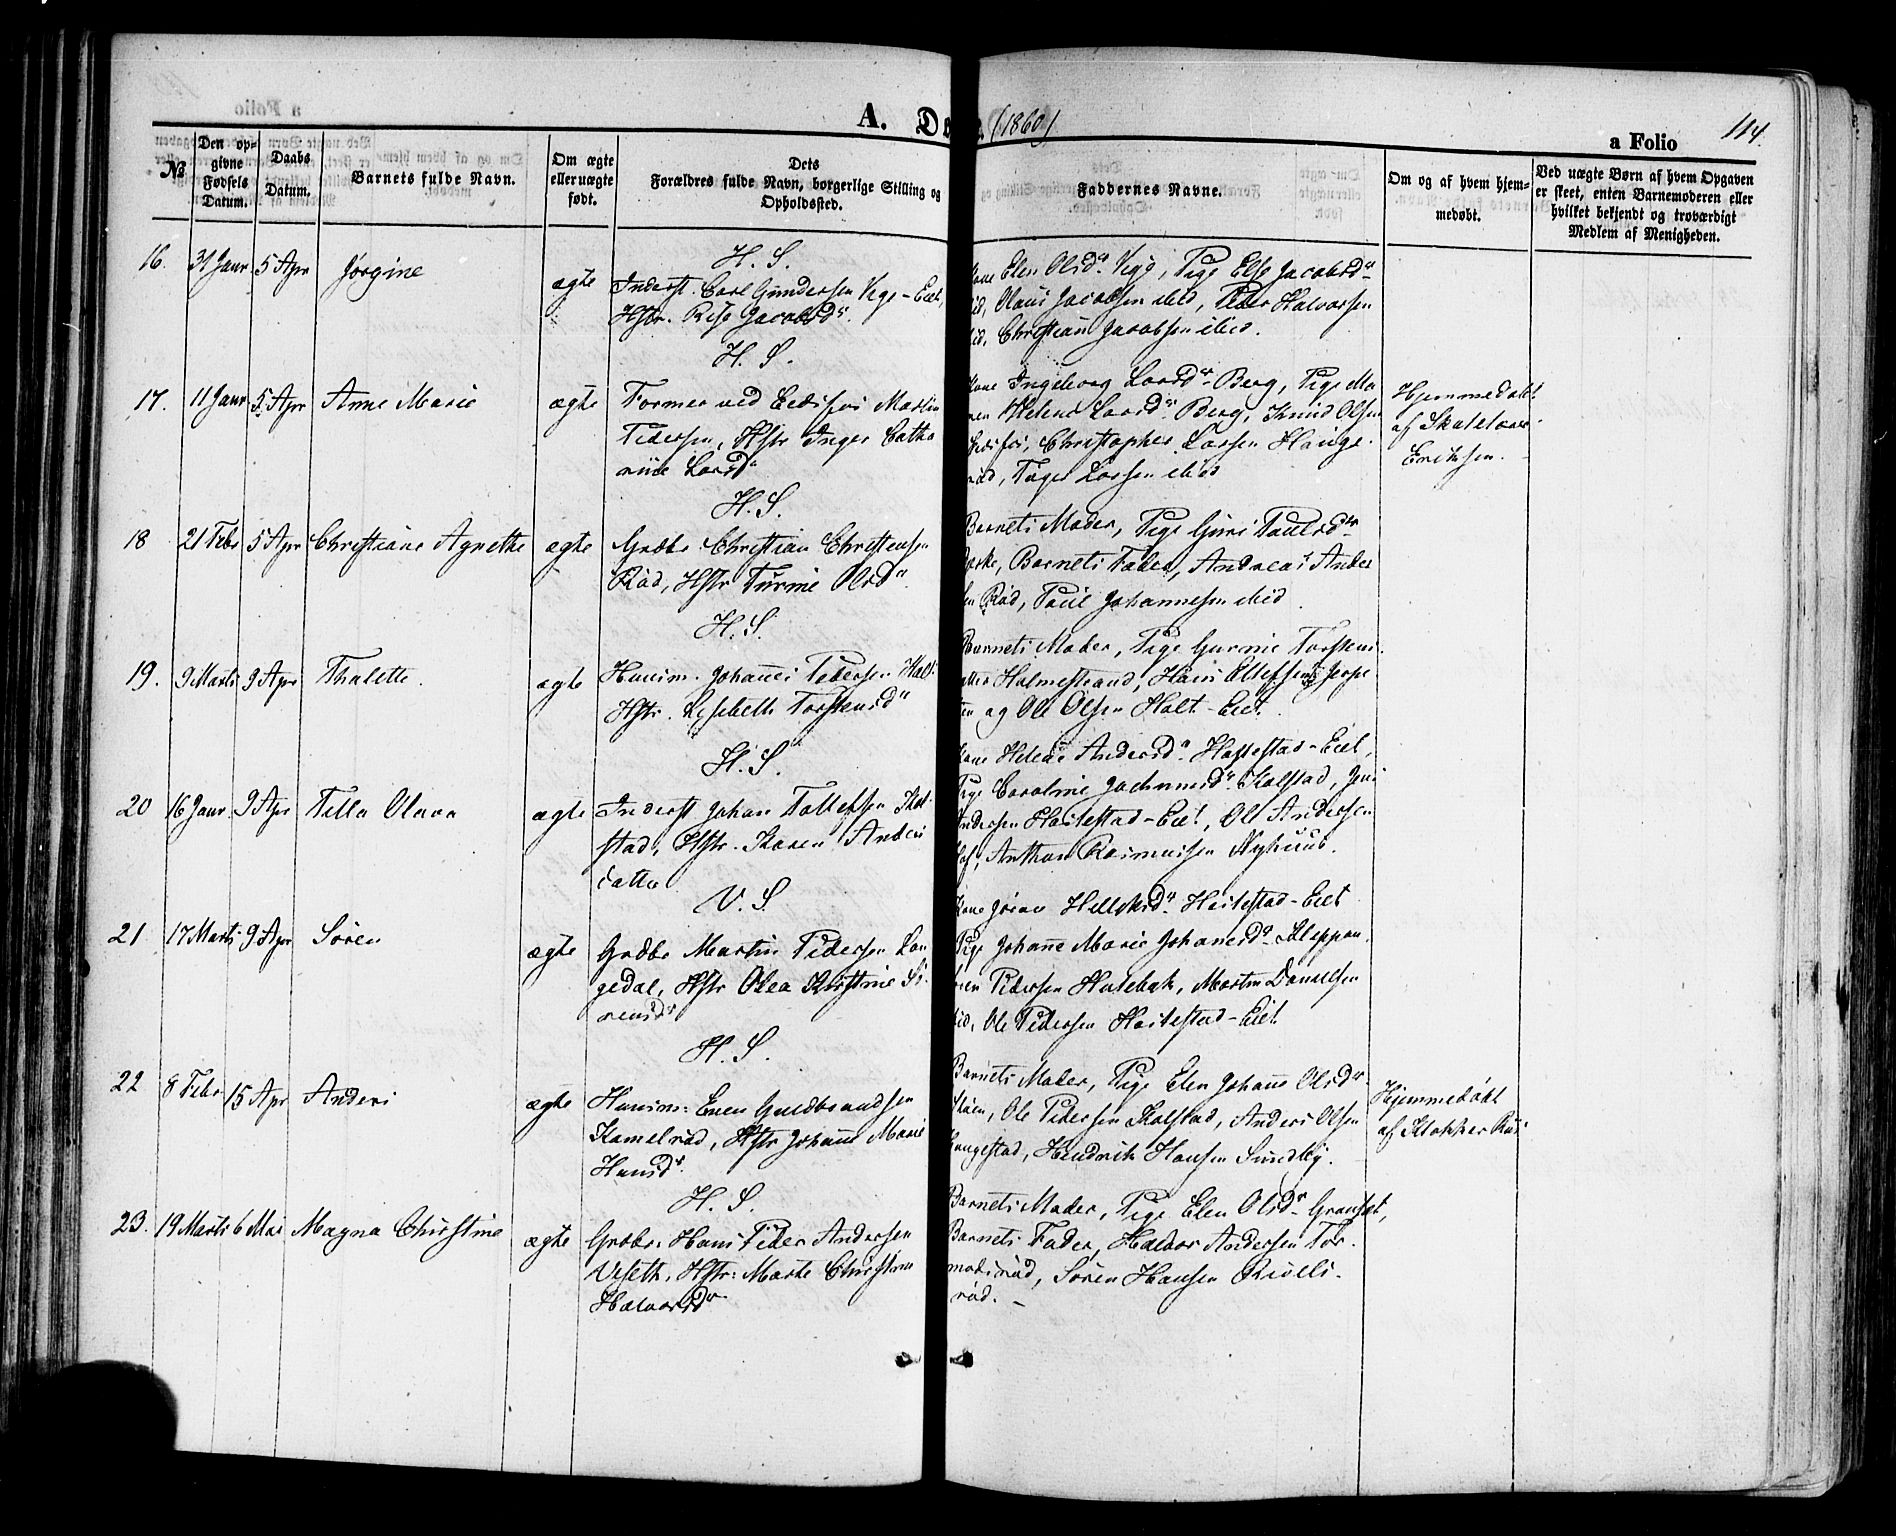 A. Dø (1860)
a Folio 114.
№
Den op-
givne
Fødsels
Datum.
Daabs
Datum.
Barnets fulde Navn.
Om ægte
eller uægte
født.
Dets
Forældres fulde Navn, borgerlige Stilling og
Opholdssted.
Faddernes Navne.
Om og af hvem hjem-
medøbt.
Ved uægte Børn af hvem Opgaven
er skeet, enten Barnemoderen eller
hvilket bekjendt og troværdigt
Medlem af Menigheden.
H. S.
16. 31 Janr 5 Apr Jørgine ægte
Inderst. Carl Gundersen Vege-Eiet,
Hstr. Jacobsdr.
Elen Olsdr. Vege, Pige Else Jacobsdr
Olaus Jacobsen ibid, Peder Halvorsen
Christian Jacobsen ibid.
H. S.
17. 11 Janr 5 Apr Anne Marie ægte
Former ved Eidsfos Martin
Pedersen, Hstr Inger Catha
rine Larsdr
Ingeborg Larsdr Berg, Pige Ma
ren Helene Larsdr. Berg, Knud Olsen
Eidsfos, Christopher Larsen Hauge
rød, Larsen ibid
Hjemmedøbt
af Skolelærer
Eriksen.
H. S.
18 21 Febr 5 Apr Christiane Agnethe ægte
Grdbr Christian Christensen
Rød, Hstr Olsdr.
Barnets Moder, Pige Guri Paulsdr
Barnets Fader, Andreas Ander
sen Rød, Paul Johannesen ibid.
H. S.
19. 9 Marts 9 Apr Thalette. ægte
Husm. Johannes Pedersen Holt
Hstr. Lisebeth Torstensdr
Barnets Moder, Pige Gurine Torstens
datter Holmestrand, Hans Ellefsen
og Ole Olsen Holt-Eiet.
H. S.
20 16 Janr. 9 Apr Tilla Olava ægte
Inderst Johan Tollefsen Kol-
stad, Hstr. Karen Anders
datter
Kone Helene Andersdr. Hastestad-Eiet,
Pige Caroline Jochumsdr. Kolstad, Jens
Andersen Hastestad-Eiet, Ole Andersen
Hof, Anthon Rasmussen Nyhuus.
V. S.
21 17 Marts 9 Apr Søren ægte
Grdbr Martin Pedersen Lan
gedal, Hstr Olea Kirstine Sø-
rensdr
Kone Hellesdr. Hastestad-Eiet
Pige Johanne Marie Johansdr. Kleppan,
Pedersen Holebæk, Martin Danielsen
ibid, Ole Pedersen Hastestad-Eiet.
H. S.
22 8 Febr 15 Apr Anders ægte
Husm: Even Guldbrandsen
Kamelrød, Hstr Johanne Marie
Hansdr.
Barnets Moder, Pige Elen Johanne Olsdr
Ole Pedersen Kolstad, Anders Olsen
Haugestad, Hendrik Hansen Sundby.
Hjemmedøbt
af Klokker
H. S.
23. 19 Marts 6 Mai Magna Christine ægte
Grdbr. Hans Peder Andersen
Veseth, Hstr: Marthe Christine
Halvorsdr.
Barnets Moder, Pige Elen Olsdr
Barnets Fader, Halvor Andersen Tor
modsrød, Søren Hansen
rød.